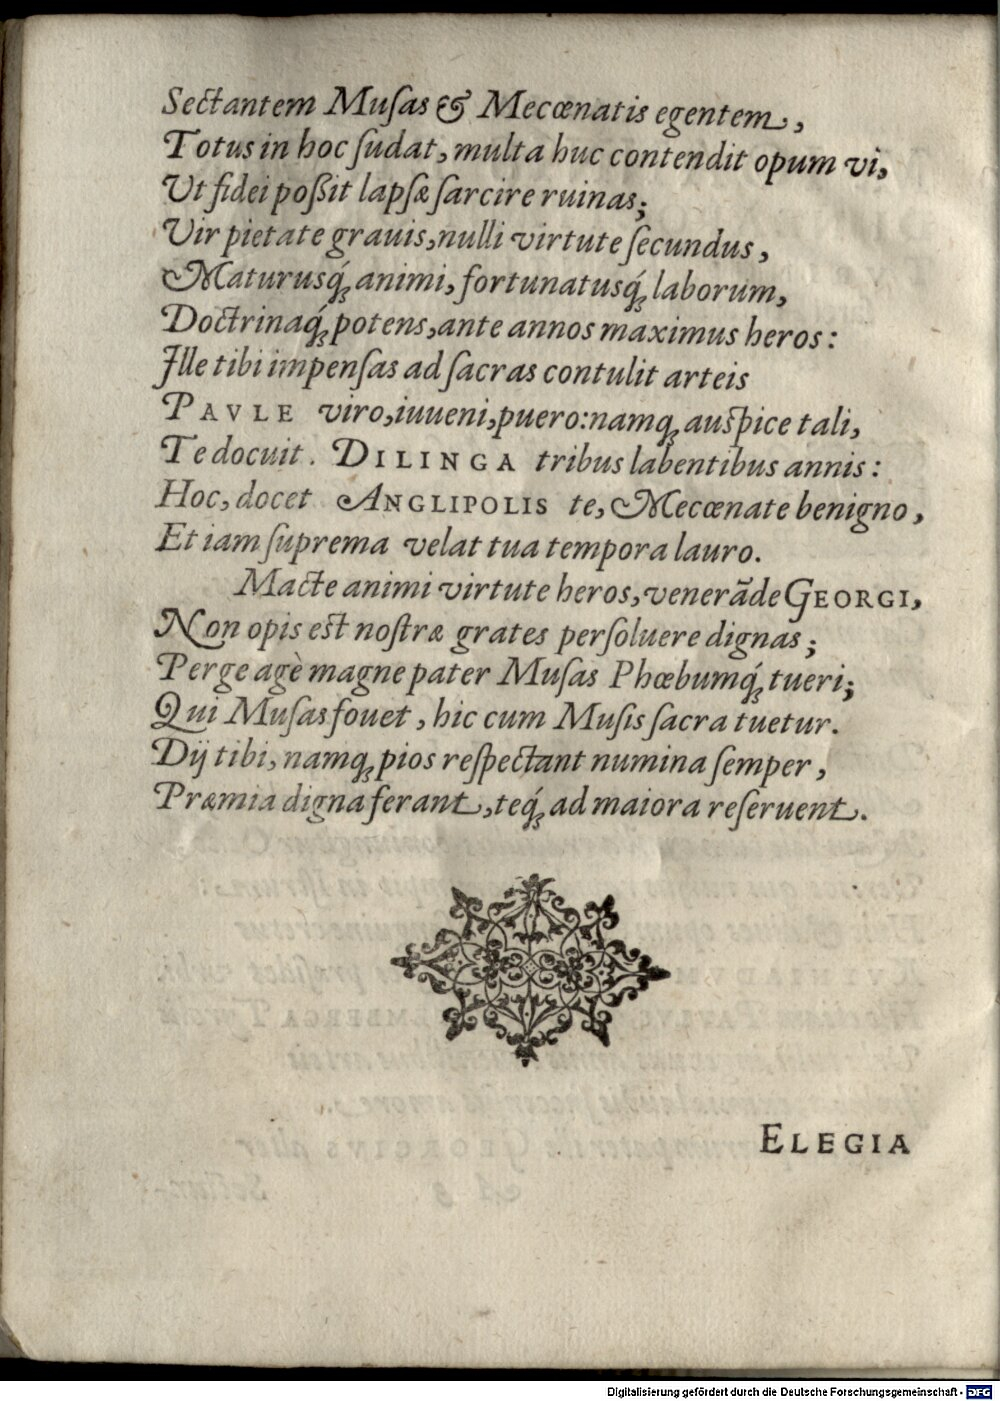 Sectantem Muſas & Mecœnatis egentem,
Totus in hoc ſudat, multa huc contendit opum vi,
Ut fidei poßit lapſæ ſarcire ruinas;
Vir pietate grauis, nulli virtute ſecundus,
Maturusq́ꝫ animi, fortunatusq́ꝫ laborum,
Doctrinaq́ꝫ potens, ante annos maximus heros:
Ille tibi impenſas ad ſacras contulit arteis
PAVLE viro, iuueni, puero: namqꝫ auſpice tali,
Te docuit. DILINGA tribus labentibus annis:
Hoc, docet ANGLIPOLIS te, Mecœnate benigno,
Et iam ſuprema velat tua tempora lauro.
Macte animi virtute heros, venerãde GEORGI,
Non opis est noſtræ grates perſoluere dignas;
Perge agè magne pater Muſas Phœbumq́ꝫ tueri;
Qui Muſas fouet, hic cum Muſis ſacra tuetur.
Dij tibi, namqꝫ pios reſpectant numina ſemper,
Præmia digna ferant, teq́ꝫ ad maiora reſeruent.
ELEGIA
Digitalisierung gefördert durch die Deutsche Forschungsgemeinschaft - DFG